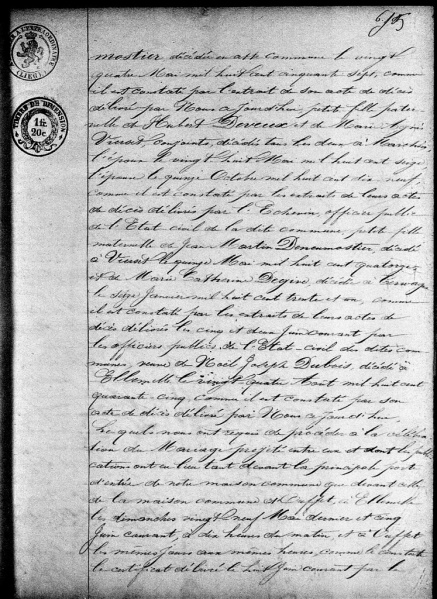 695
(LIEGE)
1fr
20c
mostier, décédée en cette commune le vingt
quatre Mai mil huit cent cinquante sept, comme
il est constaté par l'extrait de son acte de décès
délivré par Nous aujourd'hui, petite fille pater
nelle de Hubert Deveux et de Marie Agnès
conjoints, décédés tous les deux à
l'époux le vingt huit Mai mil huit cent seize
l'épouse le quinze Octobre mil huit cent dix neuf
comme il est constaté par les extraits de leurs actes
de décès délivrés par l'Echevin, officier public
de l'Etat civil de la dite commune, petite fille
maternelle de Jean Martin Doneumostier, décédé
à le quinze Mai mil huit cent quatorze
et de Marie Catherine décédée à
le sept Janvier mil huit cent trente et un, comme
il est constaté par les extraits de leurs actes de
décès délivrés les cinq et deux Juin courant par
les officiers publics de l'Etat-civil des dites com
munes, veuve de Noël Joseph Dubois, décédé à
Ellemelle le vingt-quatre Août mil huit cent
quarante cinq, comme il est constaté par son
acte de décès délivré par Nous aujourd'hui.
Lesquels nous ont requis de procéder à la célébra
tion du Mariage projeté entre eux et dont les publi
cations ont eu lieu tant devant la principale porte
d'entrée de notre maison commune que devant celle
de la maison commune d'Ouffet, à Ellemelle
les dimanches vingt neuf Mai dernier et cinq
Juin courant, à dix heures du matin, et à Ouffet
les mêmes jours aux mêmes heures, comme le constate
le certificat délivré le huit Juin courant par le